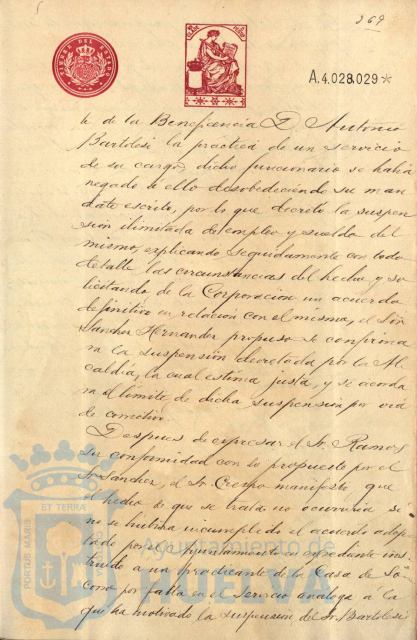 269
TIMBRE DEL ESTADO
A.4.028.029*
te de la Beneficencia D. Antonio
Bartolesi la práctica de un servicio
de su cargo, dicho funcionario se había
negado a ello desobedeciendo su man
dato escrito, por lo que decretó la suspen
sión ilimitada de empleo y sueldo del
mismo, explicando seguidamente con todo
detalle las circunstancias del hecho y so
licitando de la Corporación un acuerdo
definitivo en relación con el mismo, el Señor
Sanchez Hernandez propuso se confirma
ra la suspensión decretada por la Al
caldia, la cual estima justa, y se acorda
ra el límite de dicha suspensión por vía
de correctivo.
Despues de expresar el Sr. Ramos
su conformidad con lo propuesto por el
Sr. Sanchez, el Sr. Crespo manifestó que
el hecho de que se trata no ocurriria si
no se hubiera incumplido el acuerdo adop
tado por el Ayuntamiento en expediente ins
truido a un practicante de la Casa de So
corro por falta en el servicio análoga a la
que ha motivado la suspensión del Sr. Bartolesi
PORTUS MARIS ET TERRÆ
Ayuntamiento de
HUELVA